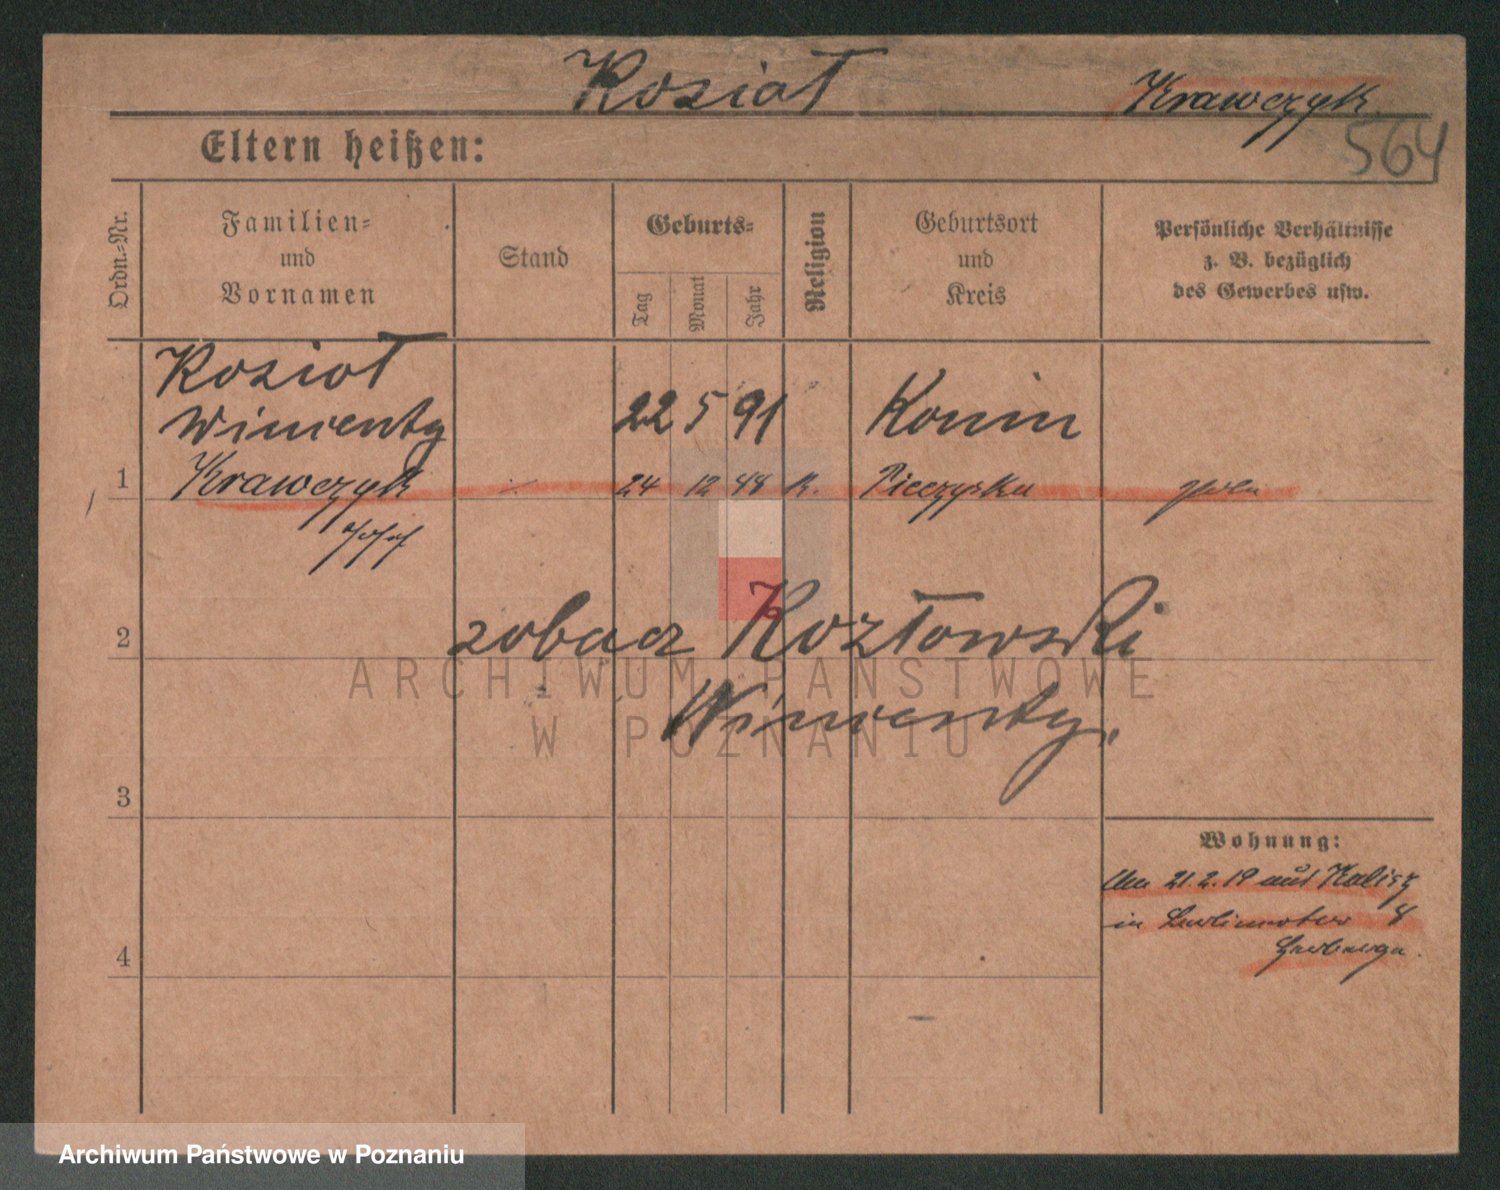 Kosioł
Krawczyk
564
Eltern heißen:
Ordn.-Nr.
Familien-
und
Vornamen
Stand
Geburts-
Tag
Monat
Jahr
Religion
Geburtsort
und
Kreis
Persönliche Verhältnisse
z. B. bezüglich
des Gewerbes usw.
Kosioł
Wincenty
22 5 91
Konin
1
Krawczyk
24 12
K.
2
zobacz Kozłowski
Wincenty.
ARCHIWUM PAŃSTWOWE
W POZNANIU
3
Wohnung:
21.2.19 aus Kalisz
in
4
Archiwum Państwowe w Poznaniu